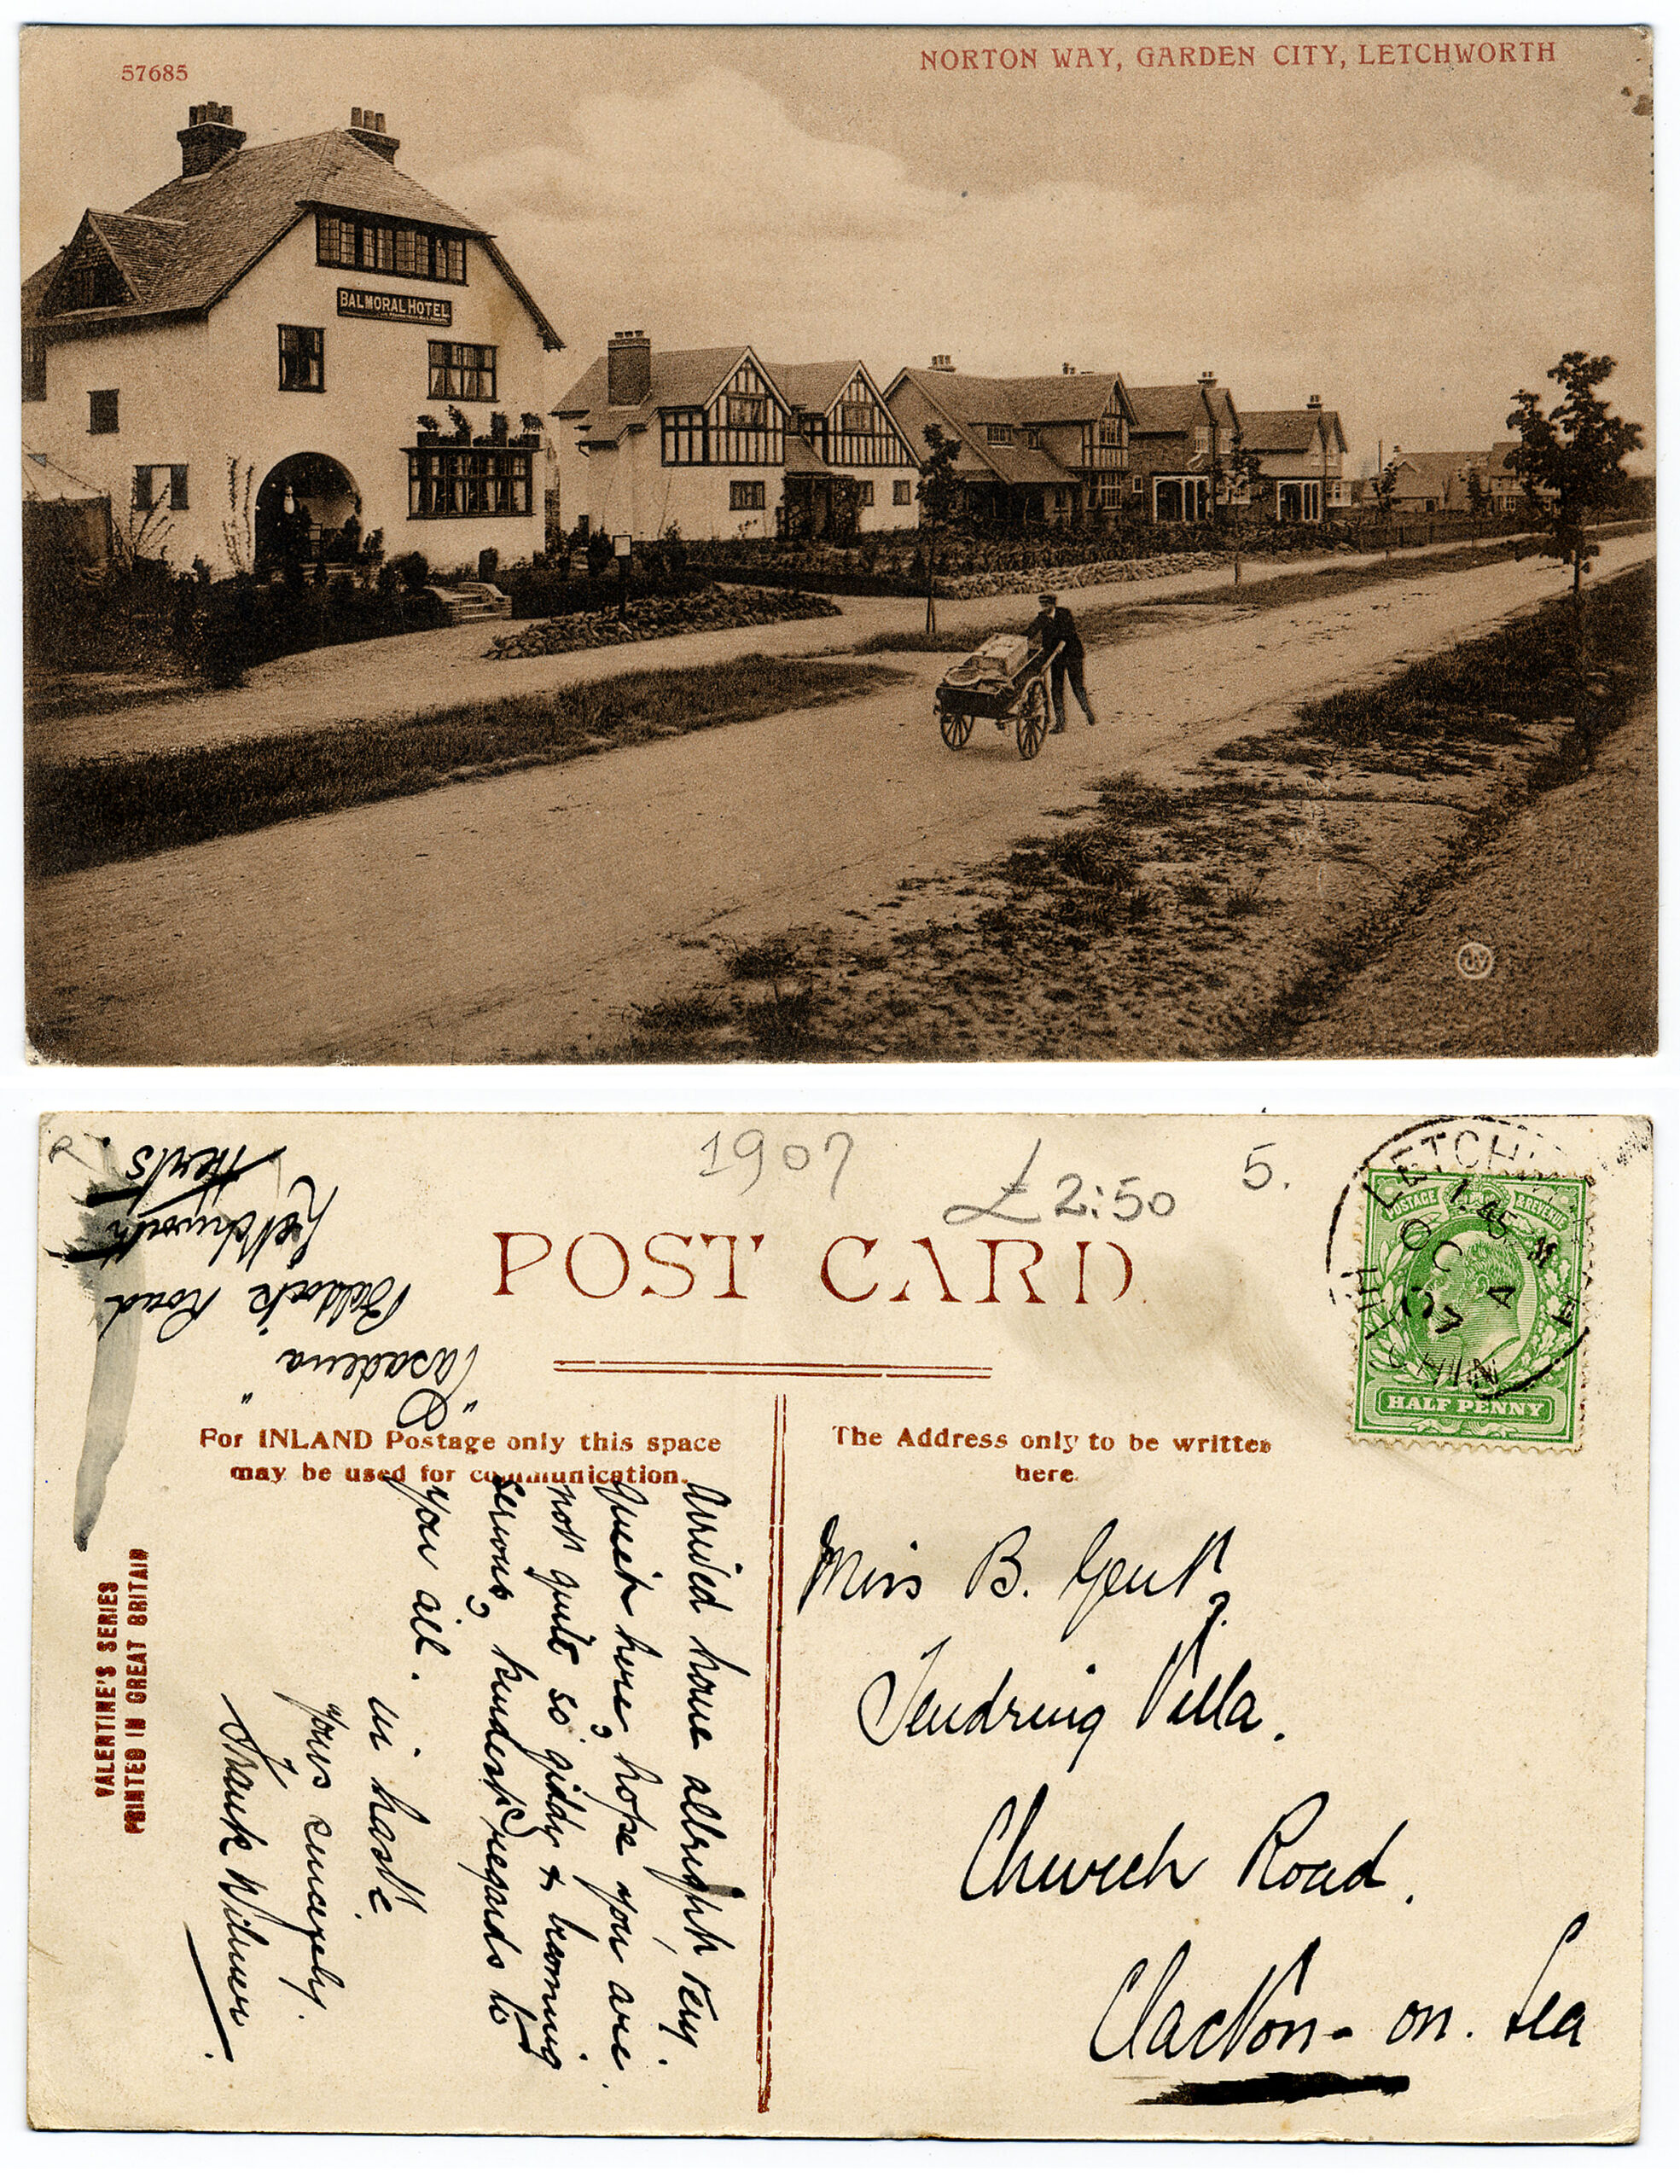 57685
NORTON WAY, GARDEN CITY, LETCHWORTH
BALMORAL HOTEL
1907
£2:50
5.
POST CARD
"Pasadena"
Baldock Road
Letchworth
Herts
LETCHW
1.45
OC 4
07
HITCHIN
POSTAGE & REVENUE
HALF PENNY
For INLAND Postage only this space
may be used for communication.
The Address only to be written
here.
Arrived home allright, very
quiet here, hope you are
not quite so giddy & becoming
serious, kindest regards to
you all.
in haste
yours sincerely.
Frank Wilmer.
Miss B. Gent,
Tendring Villa.
Church Road.
Clacton-on. Sea
VALENTINE'S SERIES
PRINTED IN GREAT BRITAIN